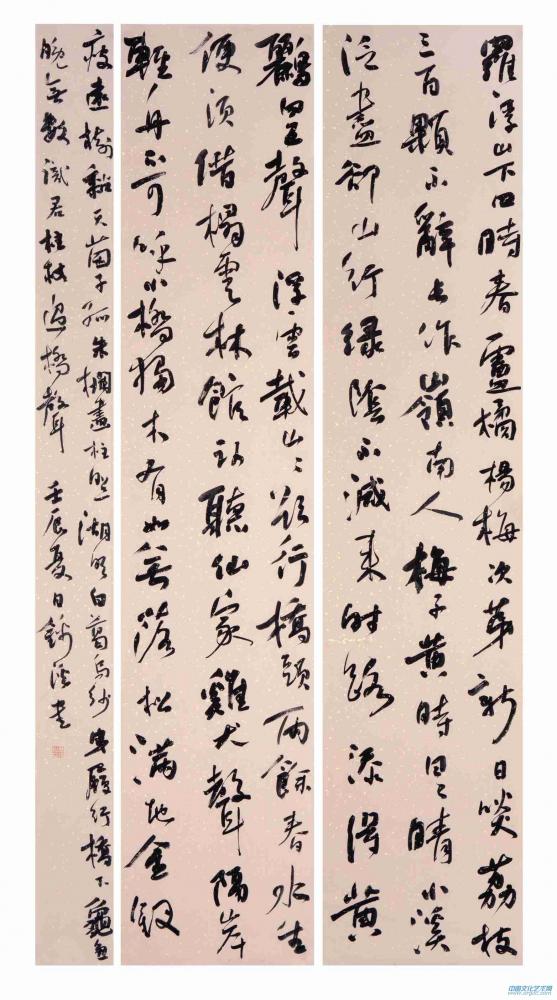 羅浮山下四時春盧橘楊梅次第新日啖荔枝
三百顆不辭長作嶺南人梅子黃時日〻晴小溪
泛盡卻山行綠陰不減來時路添得黃
鸝四五聲 浮雲載山〻欲行橋頭雨餘春水生
便須借榻雲林館臥聽仙家雞犬聲隔岸
輕舟不可呼小橋獨木有如無落松滿地金釵
瘦遠樹黏天菌子孤朱欄畫柱照湖明白葛烏紗曳履行橋下龜魚
晚無數識君柱杖過橋聲 壬辰夏日 書
中国文化艺术网